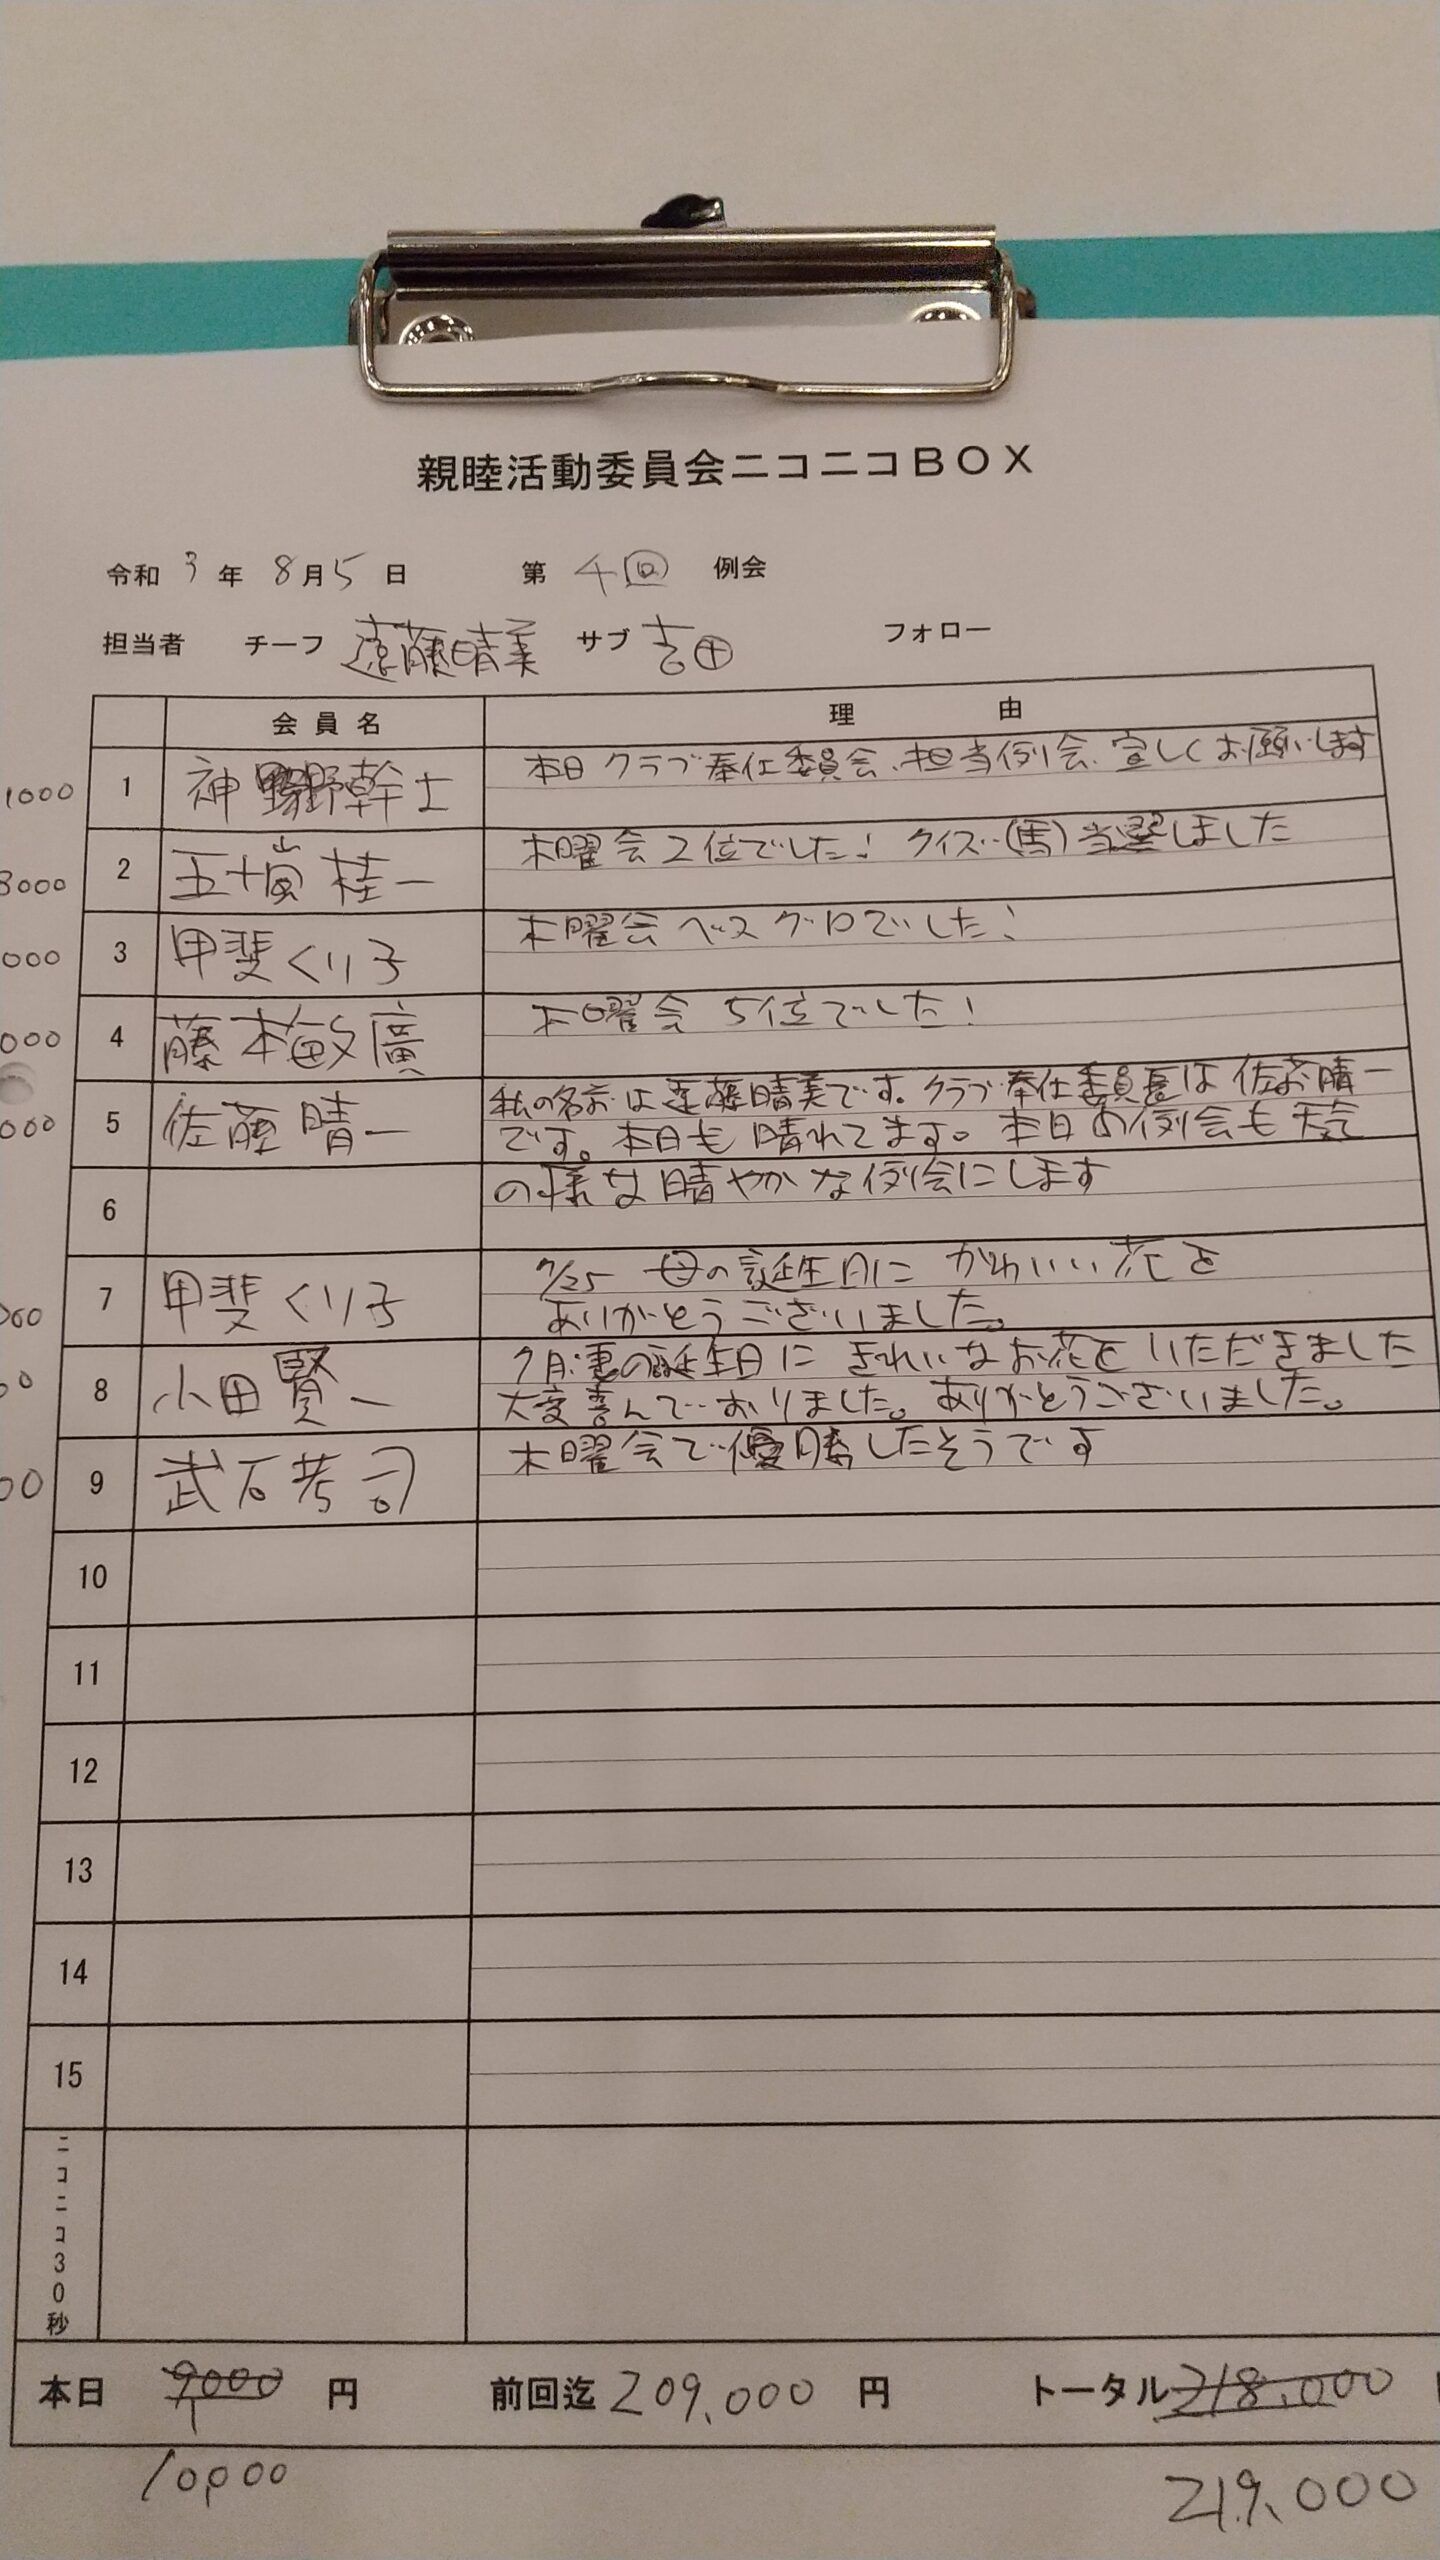 親睦活動委員会ニコニコBOX
令和 3 年 8月5 日 第 4回 例会
担当者 チーフ 遠藤晴美 サブ 吉田 フォロー
会員名 理 由
1000 1 神野幹士 本日クラブ奉仕委員会、担当例会、宜しくお願いします
3000 2 五十嵐桂一 木曜会2位でした! クイズ(馬)当選しました
000 3 甲斐くり子 木曜会ベスグロでした!
000 4 藤本敏廣 木曜会 5位でした!
000 5 佐藤晴一 私の名前は遠藤晴美です。クラブ奉仕委員長は佐藤晴一
です。本日も晴れてます。本日の例会も天気
6 の様な晴やかな例会にします
000 7 甲斐くり子 7/25 母の誕生日にかわいい花を
ありがとうございました。
00 8 小田賢一 7月妻の誕生日にきれいなお花をいただきました
大変喜んでおりました。ありがとうございました。
00 9 武石孝司 木曜会で優勝したそうです
10
11
12
13
14
15
ニコニコ30秒
本日 9000 円 前回迄 209,000 円 トータル 218,000
10,000 219,000